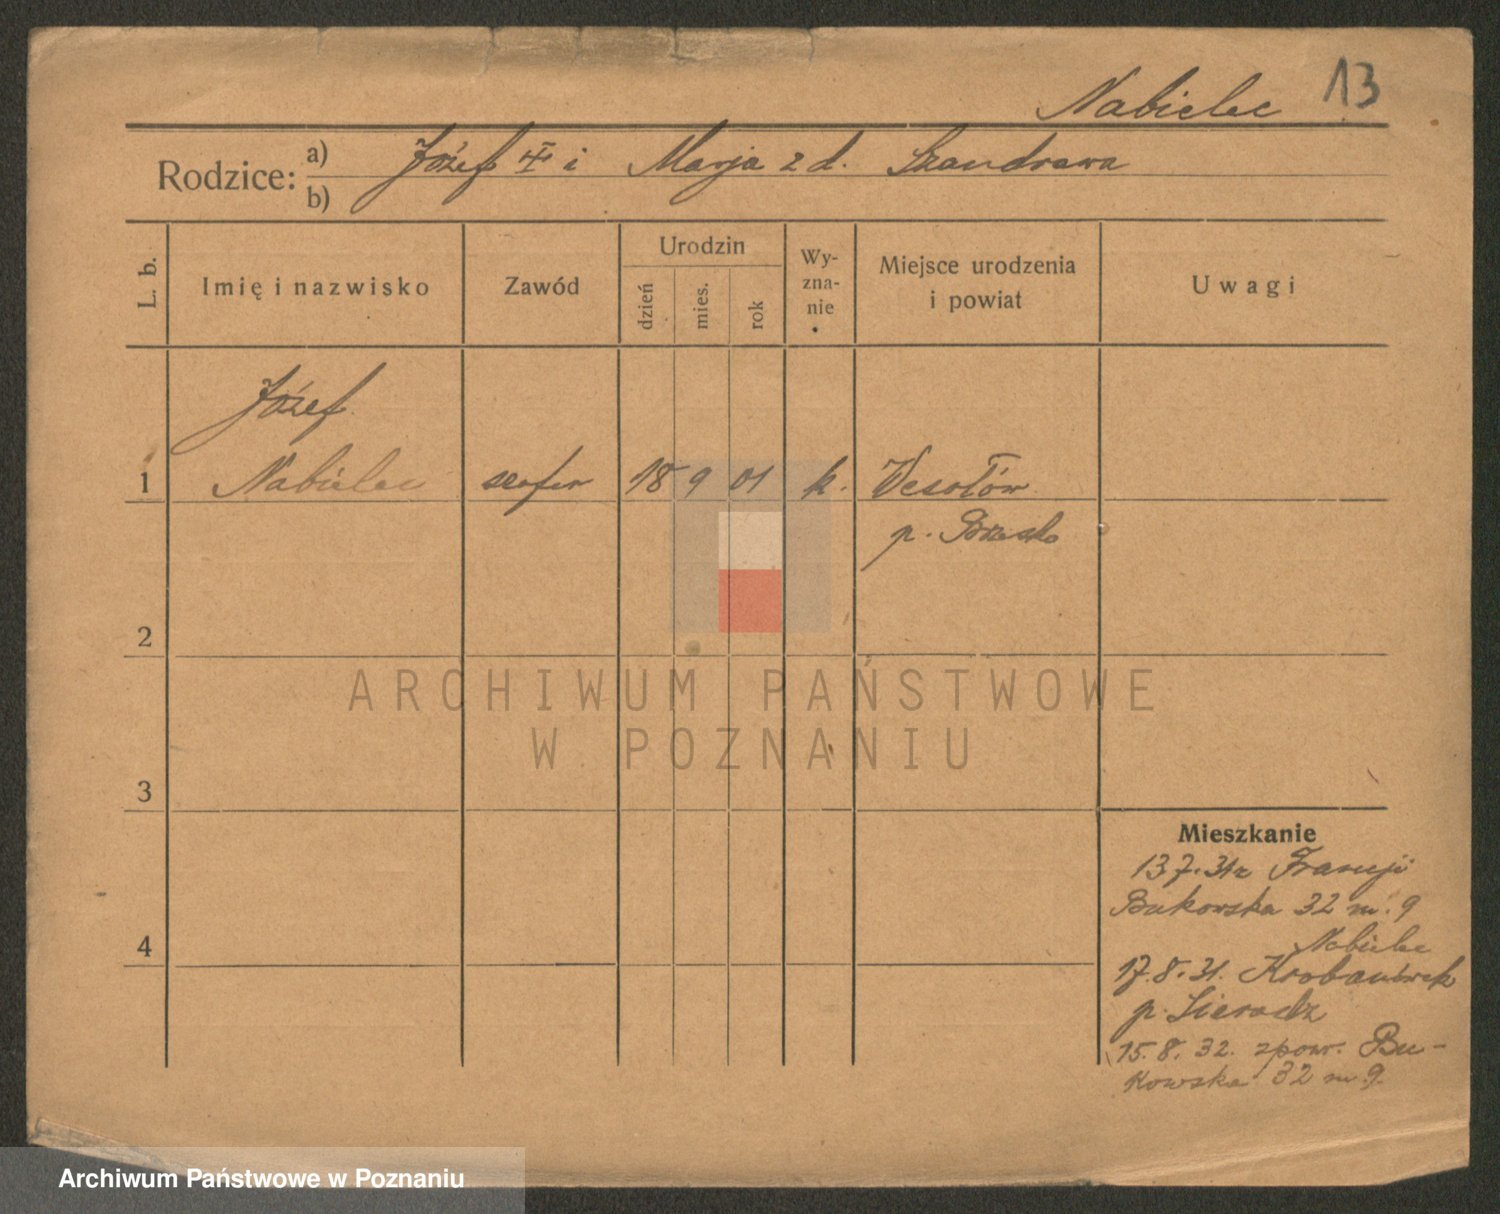 Nabielec 13
Rodzice: a) Józef i Marja z d. Szandrowa
b)
L. b. Imię i nazwisko Zawód Urodzin dzień mies. rok Wy-zna-nie Miejsce urodzenia i powiat Uwagi
Józef
1 Nabielec szofer 18 9 01 k. Wesołów
p. Brzesko
2
ARCHIWUM PAŃSTWOWE
W POZNANIU
3
Mieszkanie
13 7. 31 z Francji
Bukowska 32 m. 9
4 Nabielec
17. 8. 31.
p. Sieradz
15. 8. 32. zpowr. Bu-
kowska 32 m. 9.
Archiwum Państwowe w Poznaniu